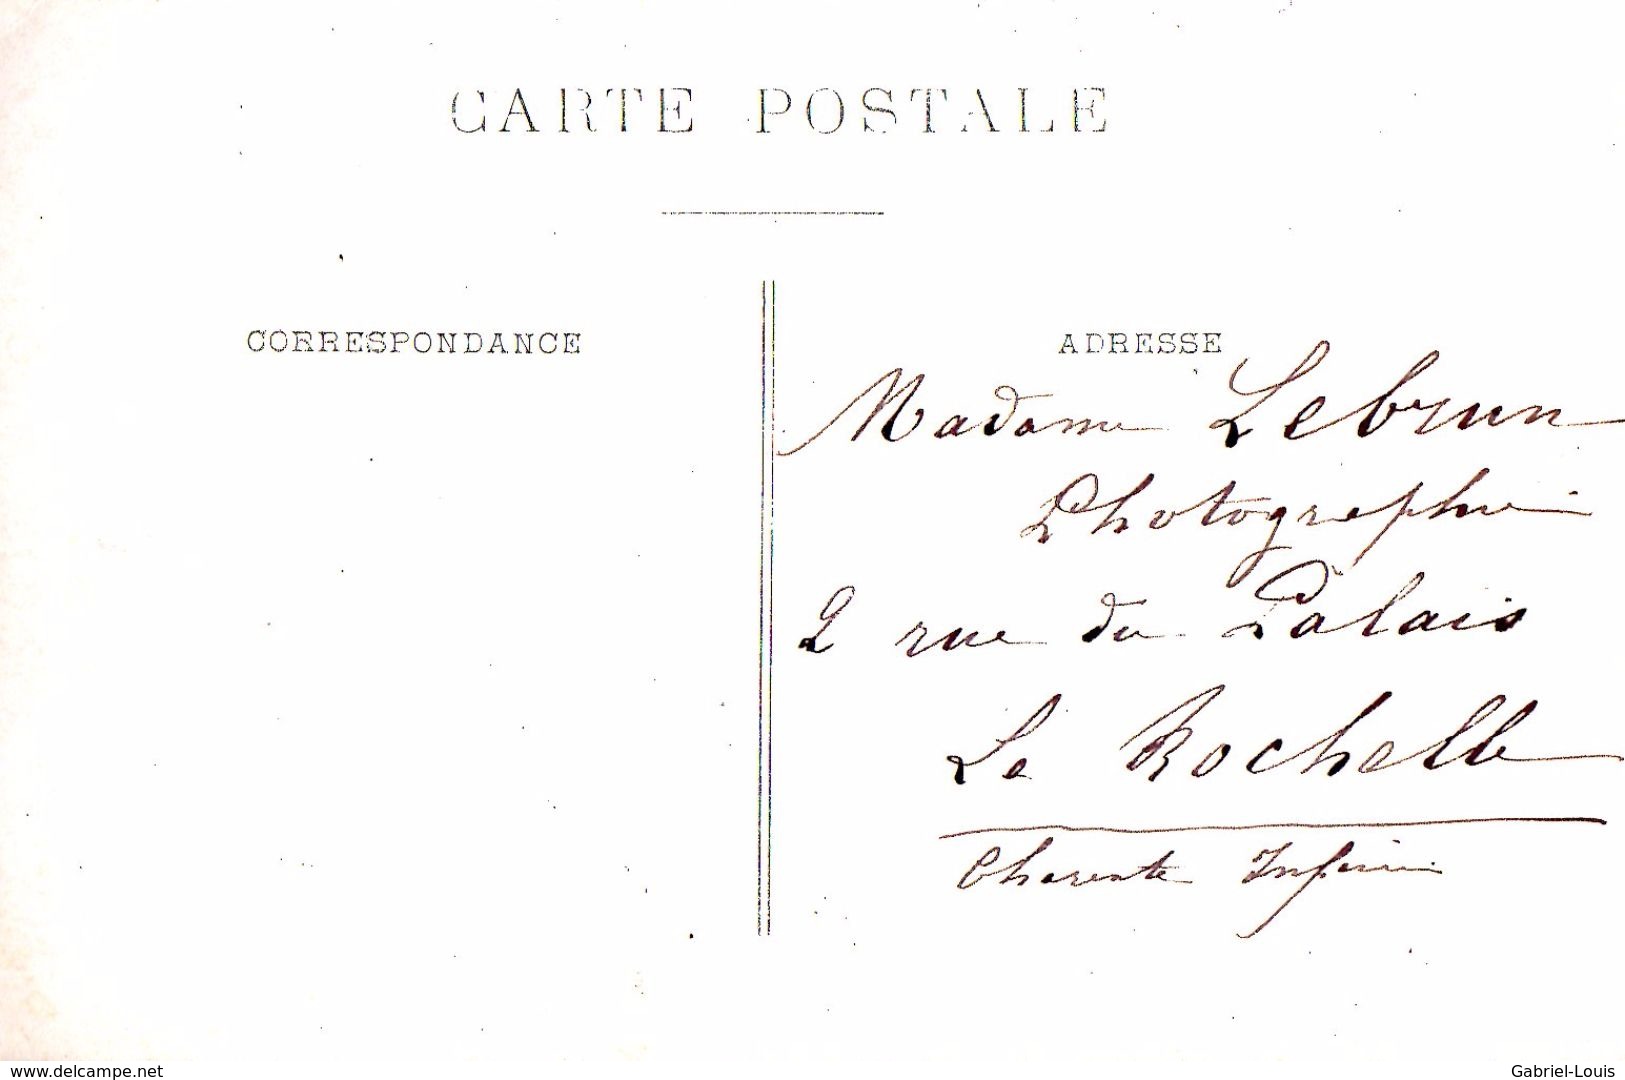 CARTE POSTALE
CORRESPONDANCE
ADRESSE
Madame Lebrun
Photographie
2 rue du Palais
La Rochelle
Charente Inférieure
www.delcampe.net
Gabriel-Louis